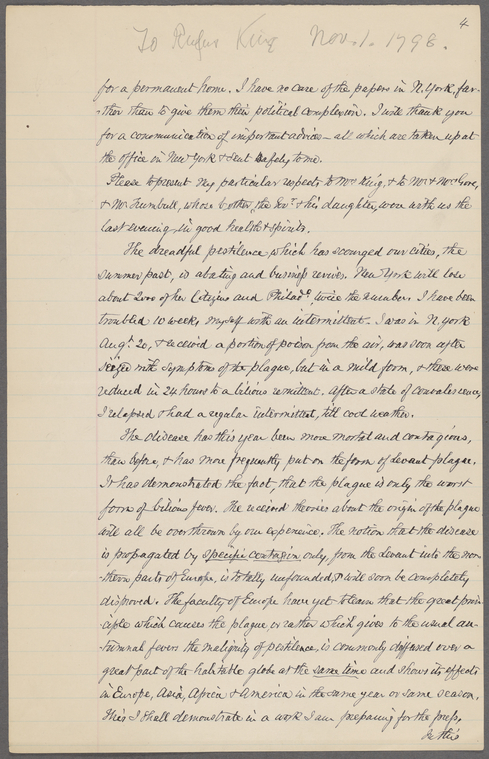 4
To Rufus King Nov. 1. 1798.
for a permanent home. I have no care of the papers in N. York, far-
-ther than to give them their political complexion. I will thank you
for a communication of important advices – all which are taken up at
the office in New York & sent safely to me.
Please to present my particular respects to Mrs King, & to Mr & Mrs Gore,
& Mr Trumbull, whose brother, the Govr. & his daughter, were with us the
last evening in good health & spirits.
The dreadful pestilence which has scourged our cities, the
summer past, is abating and business revives. New York will lose
about 2000 of her Citizens and Philadᵃ, twice the number. I have been
troubled 10 weeks myself with an intermittent. I was in N. York
Augt. 20, & received a portion of poison from the air, was soon after
seized with symptoms of the plague, but in a mild form, & these were
reduced in 24 hours to a bilious remittent. After a state of convalescence,
I relapsed & had a regular intermittent, till cool weather.
The disease has this year been more mortal and contagious,
than before, & has more frequently put on the form of Levant plague.
It has demonstrated the fact, that the plague is only the worst
form of bilious fever. The received theories about the origin of the plague
will all be overthrown by our experience. The notion that the disease
is propagated by specific contagion only, from the Levant into the nor-
-thern parts of Europe, is totally unfounded, & will soon be completely
disproved. The faculty of Europe have yet to learn that the great prin-
-ciple which causes the plague or rather which gives to the usual au-
-tumnal fevers the malignity of pestilence, is commonly diffused over a
great part of the habitable globe at the same time and shows its effects
in Europe, Asia, Africa & America in the same year or same season.
This I shall demonstrate in a work I am preparing for the press.
In this